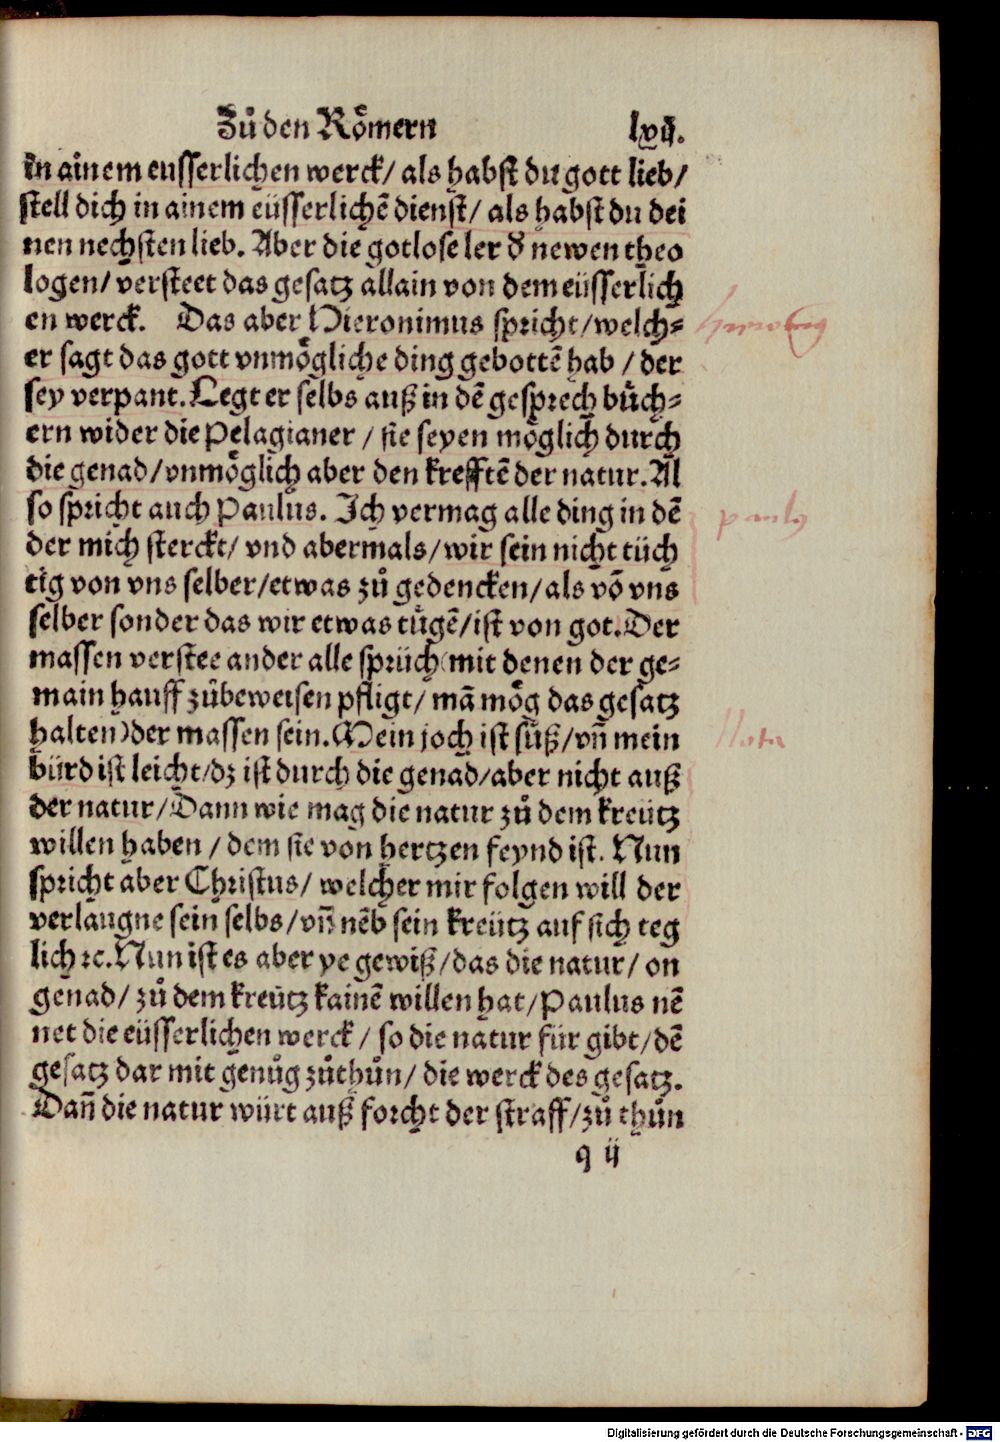 Zů den Roͤmern lxij.
in ainem eusserlichen werck/ als habst du gott lieb/
stell dich in ainem eüsserlichẽ dienst/ als habst du dei
nen nechsten lieb. Aber die gotlose ler ð newen theo
logen/ versteet das gesatz allain von dem eüsserlich
en werck. Das aber Hieronimus spricht/welch⸗
er sagt das gott vnmoͤgliche ding gebottẽ hab / der
sey verpant. Legt er selbs auß in dẽ gesprech buͤch⸗
ern wider die Pelagianer / sie seyen moͤglich durch
die genad/vnmoͤglich aber den krefftẽ der natur. Al
so spricht auch Paulus. Ich vermag alle ding in dẽ
der mich sterckt/ vnd abermals/wir sein nicht tüch
tig von vns selber/etwas zů gedencken/als võ vns
selber sonder das wir etwas tuͤgẽ/ist von got. Der
massen verstee ander alle sprüch (mit denen der ge⸗
main hauff zůbeweisen pfligt/ mã moͤg das gesatz
halten) der massen sein. Mein joch ist suͤß/vñ mein
bürd ist leicht/dz ist durch die genad/aber nicht auß
der natur/Dann wie mag die natur zů dem kreütz
willen haben / dem sie von hertzen feynd ist. Nun
spricht aber Christus/ welcher mir folgen will der
verlaugne sein selbs/vñ nẽb sein kreütz auf sich teg
lich ⁊c. Nun ist es aber ye gewiß/das die natur/ on
genad/ zů dem kreütz kainẽ willen hat/Paulus nẽ
net die eüsserlichen werck / so die natur für gibt/dẽ
gesatz dar mit genůg zůthůn/ die werck des gesatz.
Dañ die natur würt auß forcht der straff/zů thůn
q ij
paulus
Nota
Digitalisierung gefördert durch die Deutsche Forschungsgemeinschaft - DFG